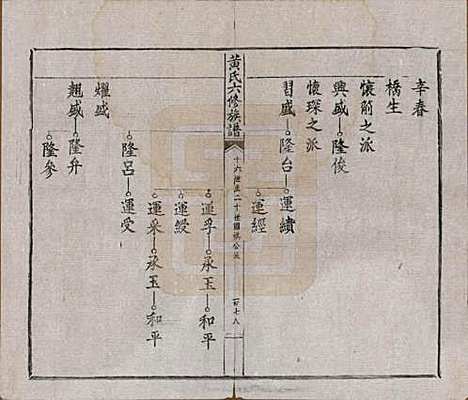 辛春
橋生
懷前之派
興盛 隆俊
懷琛之派
習盛 隆台 運續
運經
黃氏六修族譜
十六世至二十世國祺公派
百七八
運孚 承玉 和平
運綬
運采 承玉 和平
隆呂 運受
耀盛
翹盛 隆升
隆參